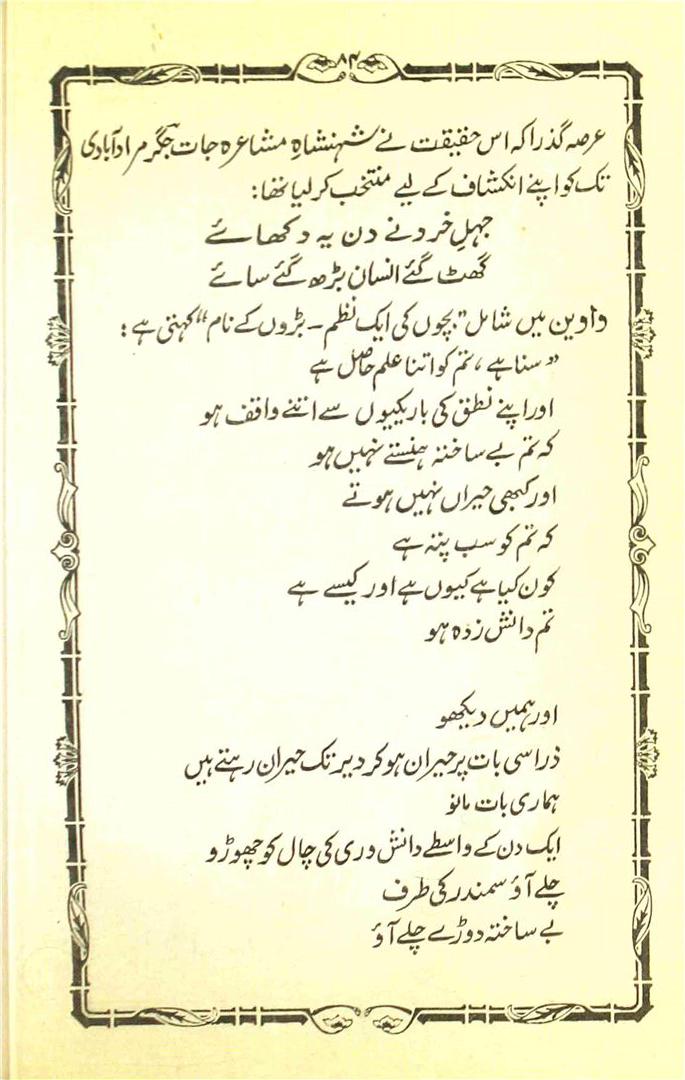 ۸۴
عرصہ گذرا کہ اس حقیقت نے شہنشاہِ مشاعرہ جات جگر مرادآبادی
تک کو اپنے انکشاف کے لیے منتخب کر لیا تھا:
جہلِ خرد نے دن یہ دکھائے
گھٹ گئے انسان بڑھ گئے سائے
واوین میں شامل "بچوں کی ایک نظم ـ بڑوں کے نام" کہتی ہے:
"سنا ہے، تم کو اتنا علم حاصل ہے
اور اپنے نطق کی باریکیوں سے اتنے واقف ہو
کہ تم بے ساختہ ہنستے نہیں ہو
اور کبھی حیراں نہیں ہوتے
کہ تم کو سب پتہ ہے
کون کیا ہے کیوں ہے اور کیسے ہے
تم دانش زدہ ہو
اور ہمیں دیکھو
ذرا سی بات پر حیران ہو کر دیر تک حیران رہتے ہیں
ہماری بات مانو
ایک دن کے واسطے دانش وری کی چال کو چھوڑو
چلے آؤ سمندر کی طرف
بے ساختہ دوڑے چلے آؤ